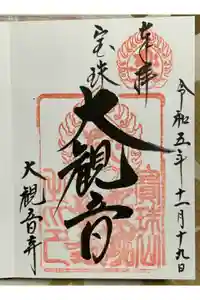 奉拝
令和五年十一月十九日
宝珠
大観音
大観音寺
寳珠山